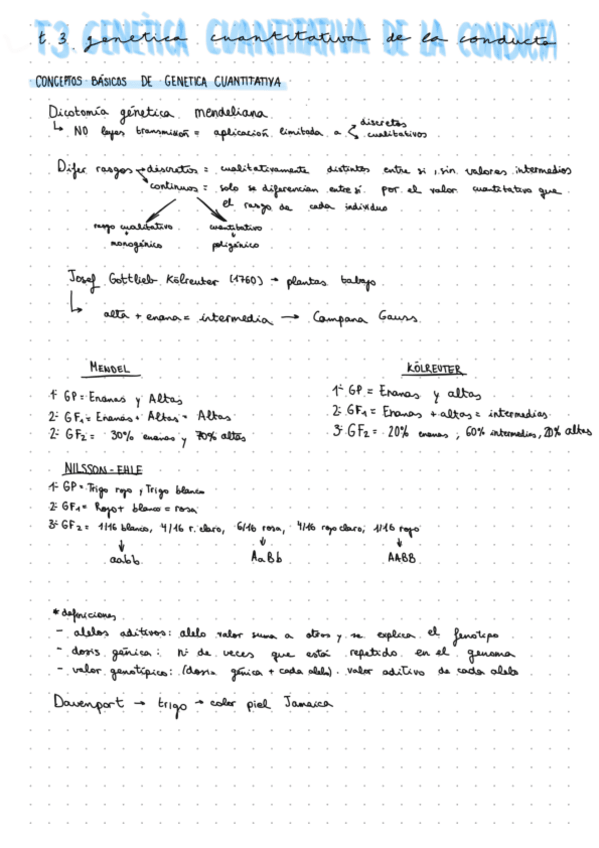 T.3. GENÉTICA CUANTITATIVA DE LA CONDUCTA
t. 3. genética cuantitativa de la conducta
CONCEPTOS BÁSICOS DE GENETICA CUANTITATIVA
Dicotomía génetica mendeliana
↳ NO leyes transmisión = aplicación limitada a < discretos
cualitativos
Difer rasgos → discretos = cualitativamente distintos entre si, sin valores intermedios
continuos = solo se diferencian entre sí por el valor cuantitativo que
el rasgo de cada individuo
rasgo cualitativo cuantitativo
monogénico poligénico
Josef Gottlieb Kölreuter (1760) → plantas tabajo
↳ alta + enana = intermedia → Campana Gauss
MENDEL KÖLREUTER
1º GP = Enanas y Altas 1º GP = Enanas y altas
2º GF1 = Enanas + Altas = Altas 2º GF1 = Enanas + altas = intermedias
2º GF2 = 30% enanas y 70% altas 3º GF2 = 20% enanas ; 60% intermedias, 20% altas
NILSSON-EHLE
1º GP = Trigo rojo y Trigo blanco
2º GF1 = Rojo + blanco = rosa
3º GF2 = 1/16 blanco, 4/16 r. claro, 6/16 rosa, 4/16 rojo claro, 1/16 rojo
↓ ↓ ↓
aabb AaBb AABB
* definiciones
- alelos aditivos: alelo valor suma a otros y se explica el fenotipo
- dosis génica: nº de veces que está repetido en el genoma
- valor genotípico: (dosis génica + cada alelo) · valor aditivo de cada alelo
Davenport → trigo → color piel Jamaica